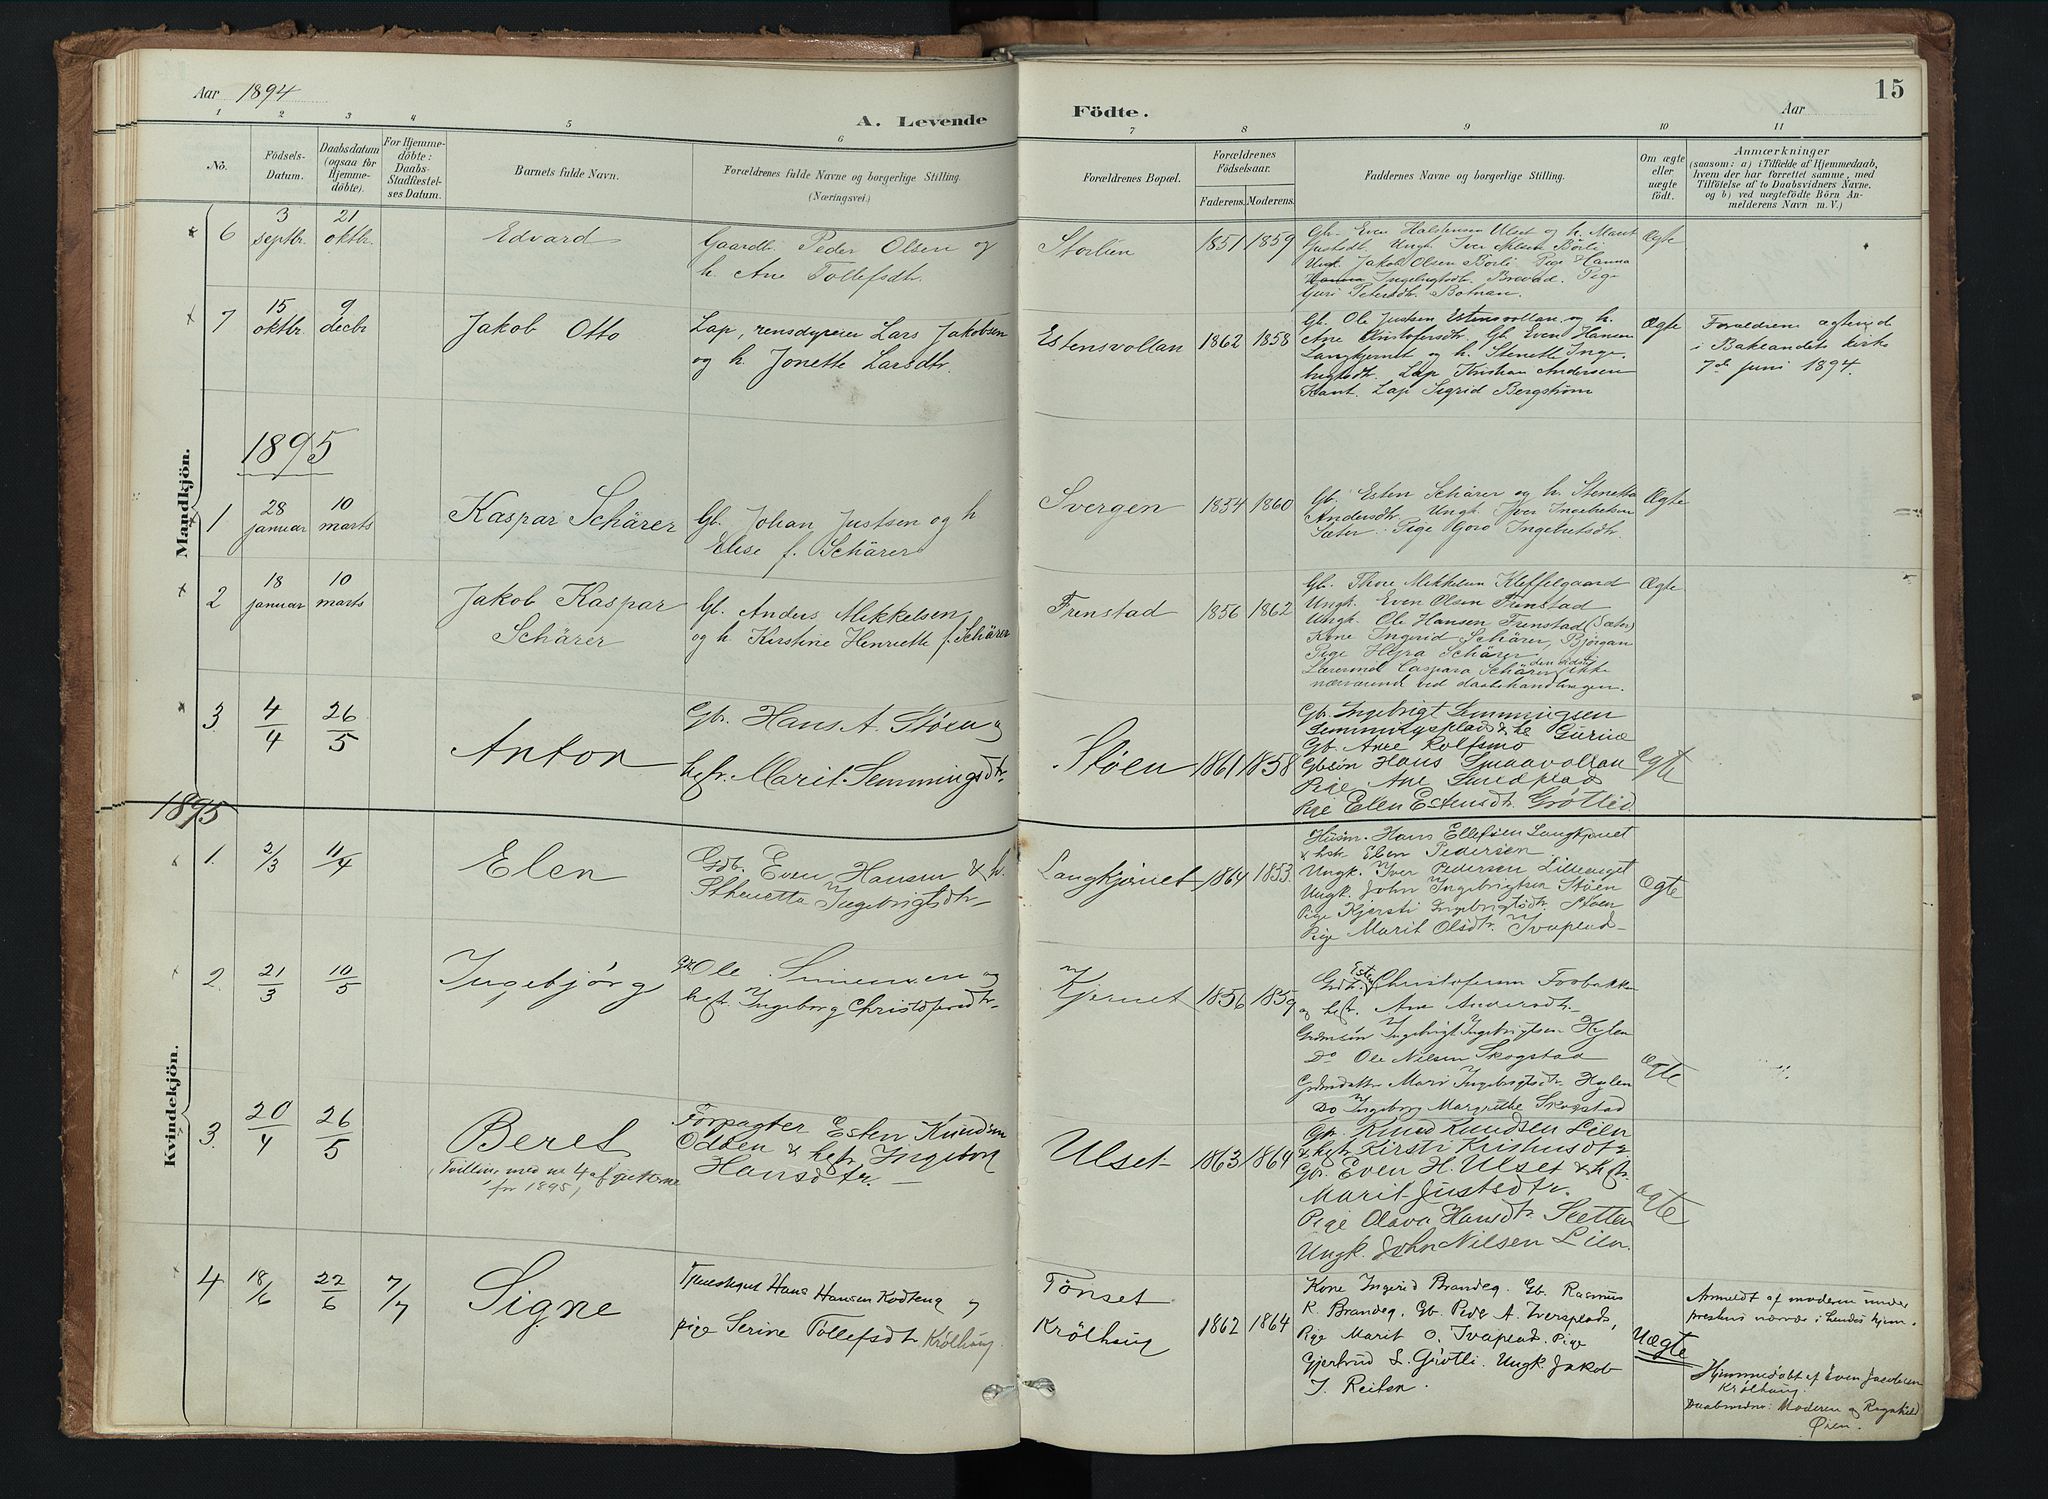 15
Aar 1894
A. Levende Födte.
Aar
1 2 3 4 5 6 7 8 9 10 11
No.
Födsels-Datum.
Daabsdatum (ogsaa for Hjemmedöbte).
For Hjemmedöbte: Daabs-Stadfæstelses Datum.
Barnets fulde Navn.
Forældrenes fulde Navne og borgerlige Stilling.
(Næringsvei.)
Forældrenes Bopæl.
Forældrenes Födselsaar.
Faderens. Moderens.
Faddernes Navne og borgerlige Stilling.
Om ægte eller uægte födt.
Anmærkninger
(saasom: a) i Tilfælde af Hjemmedaab,
hvem der har forrettet samme, med
Tilföielse af to Daabsvidners Navne.
og b) ved uægtefödte Börn An-
melderens Navn m. V.)
Mandkjön.
6
3 septbr.
21 oktbr.
Edvard
Gaardb. Peder Olsen og
h. Ane Tollefsdtr.
Storlien
1851 1859
Gb. Even Halstensen Ulset og h. Marit
Justsdt. Ungk. Iver Nilsen Börli
Ungk. Jakob Olsen Börli Pige Hanna
Hanna Ingebrigtsdtr. Brovad. Pige
Guri Petersdtr. Botnan.
Ægte
7
15 oktbr.
9 decbr
Jakob Otto
Lap, rensdyreier Lars Jakobsen
og h. Jonette Larsdtr.
Estensvollan
1862 1858
Gb. Ole Justsen Estensvollan og h.
Ane Kristofersdtr. Gb. Even Hansen
Langkjernet og h. Stenette Inge-
brigtsdtr. Lap Kristian Andersen
Kant. Lap Sigrid Bergstrøm
Ægte
Forældrene ægteviede
i Baklandets kirke
7de juni 1894.
1895
1
28 januar
10 marts
Kaspar Schärer
Gb. Johan Justsen og h
Elise f. Schärer
Svergen
1854 1860
Gb. Esten Schärer og h. Stenetta
Andersdtr. Ungk. Iver Ingebretsen
Sæter. Pige Goro Ingebretsdtr.
Ægte
2
18 januar
10 marts
Jakob Kaspar
Schärer
Gb. Anders Mikkelsen
og h. Kirstine Henriette f. Schärer
Frenstad
1856 1862
Gb. Thore Mikkelsen Kleffelgaard
Ungk. Even Olsen Frenstad
Ungk. Ole Hansen Frenstad (Sæter)
Kone Ingrid Schärer, Björgan
Pige Schärer
Caspara Schärer, den sidste ikke
nærværende ved daabshandlingen.
Ægte
3
4/4
26/5
Anton
Gb. Hans A. Støen og
hfr. Marit Semmingsdtr.
Støen
1861 1858
Gb. Ingebrigt Semmingsen
Semmingsplads & h. Gurine
Gb. Arne Rolfsmo
Gbsön Hans Smaavollan
Pige Ane Sundplads
Pige Elen Estensdtr. Grøtlid
Ægte
1895
Kvindekjön.
1.
2/3
11/4
Elen
Gdb. Even Hansen & h.
Sthenetta Ingebrigtsdtr.
Langkjernet
1864 1853
Husm. Hans Ellefsen Langkjernet
& hstr. Elen Pedersen
Ungk. Iver Pedersen Lilleenget
Ungk. John Ingebrigtsen Støen
Pige Kjersti Ingebrigtsdtr. Støen
Pige Marit Olsdtr. Tvaplads
Ægte
2.
21/3
10/5
Ingebjörg
Gb. Ole Simensen og
hfr. Ingeborg Christofersdtr.
Kjernet
1856 1859
Grdb. Esten Christofersen Frobakken
og hfr. Ane Andersdtr.
Grdmsön Ingebrigt Ingebrigtsen Hylen
Do Ole Nilsen Skogstad
Grdmdatter Mari Ingebrigtsdtr. Hylen
Do Ingeborg Margrethe Skogstad
Ægte
3.
20/4
26/5
Beret
(Tvilling med no 4 af gutterne
for 1895)
Forpagter Esten Knudsen
Odden & hfr. Ingeborg
Hansdtr.
Ulset
1863 1864
Gb. Knud Knudsen Lien
& hfr. Kirsti
Gb. Even H. Ulset & hfr.
Marit Justsdtr.
Pige Olava Hansdtr. Sletten
Ungk. John Nilsen Lien.
Ægte
4
18/6
22/6
7/7
Signe
Tjenestegut Hans Hansen Kodteng og
pige Serine Tollefsdtr. Krölhaug.
Tønset
Krölhaug
1862 1864
Kone Ingerid Brandeg. Gb. Rasmus
K. Brandeg. Gb. Peder A. Iversplads,
Pige Marit O. Tvaplads. Pige
Gjertrud L. Grøtli. Ungk. Jakob
J. Reiten.
Uægte
Anmeldt af moderen under
prestens nærvær i hendes hjem.
Hjemmedøbt af Even Jacobsen
Krölhaug.
Daabsvidner: Moderen og Ragnhild
Øien.